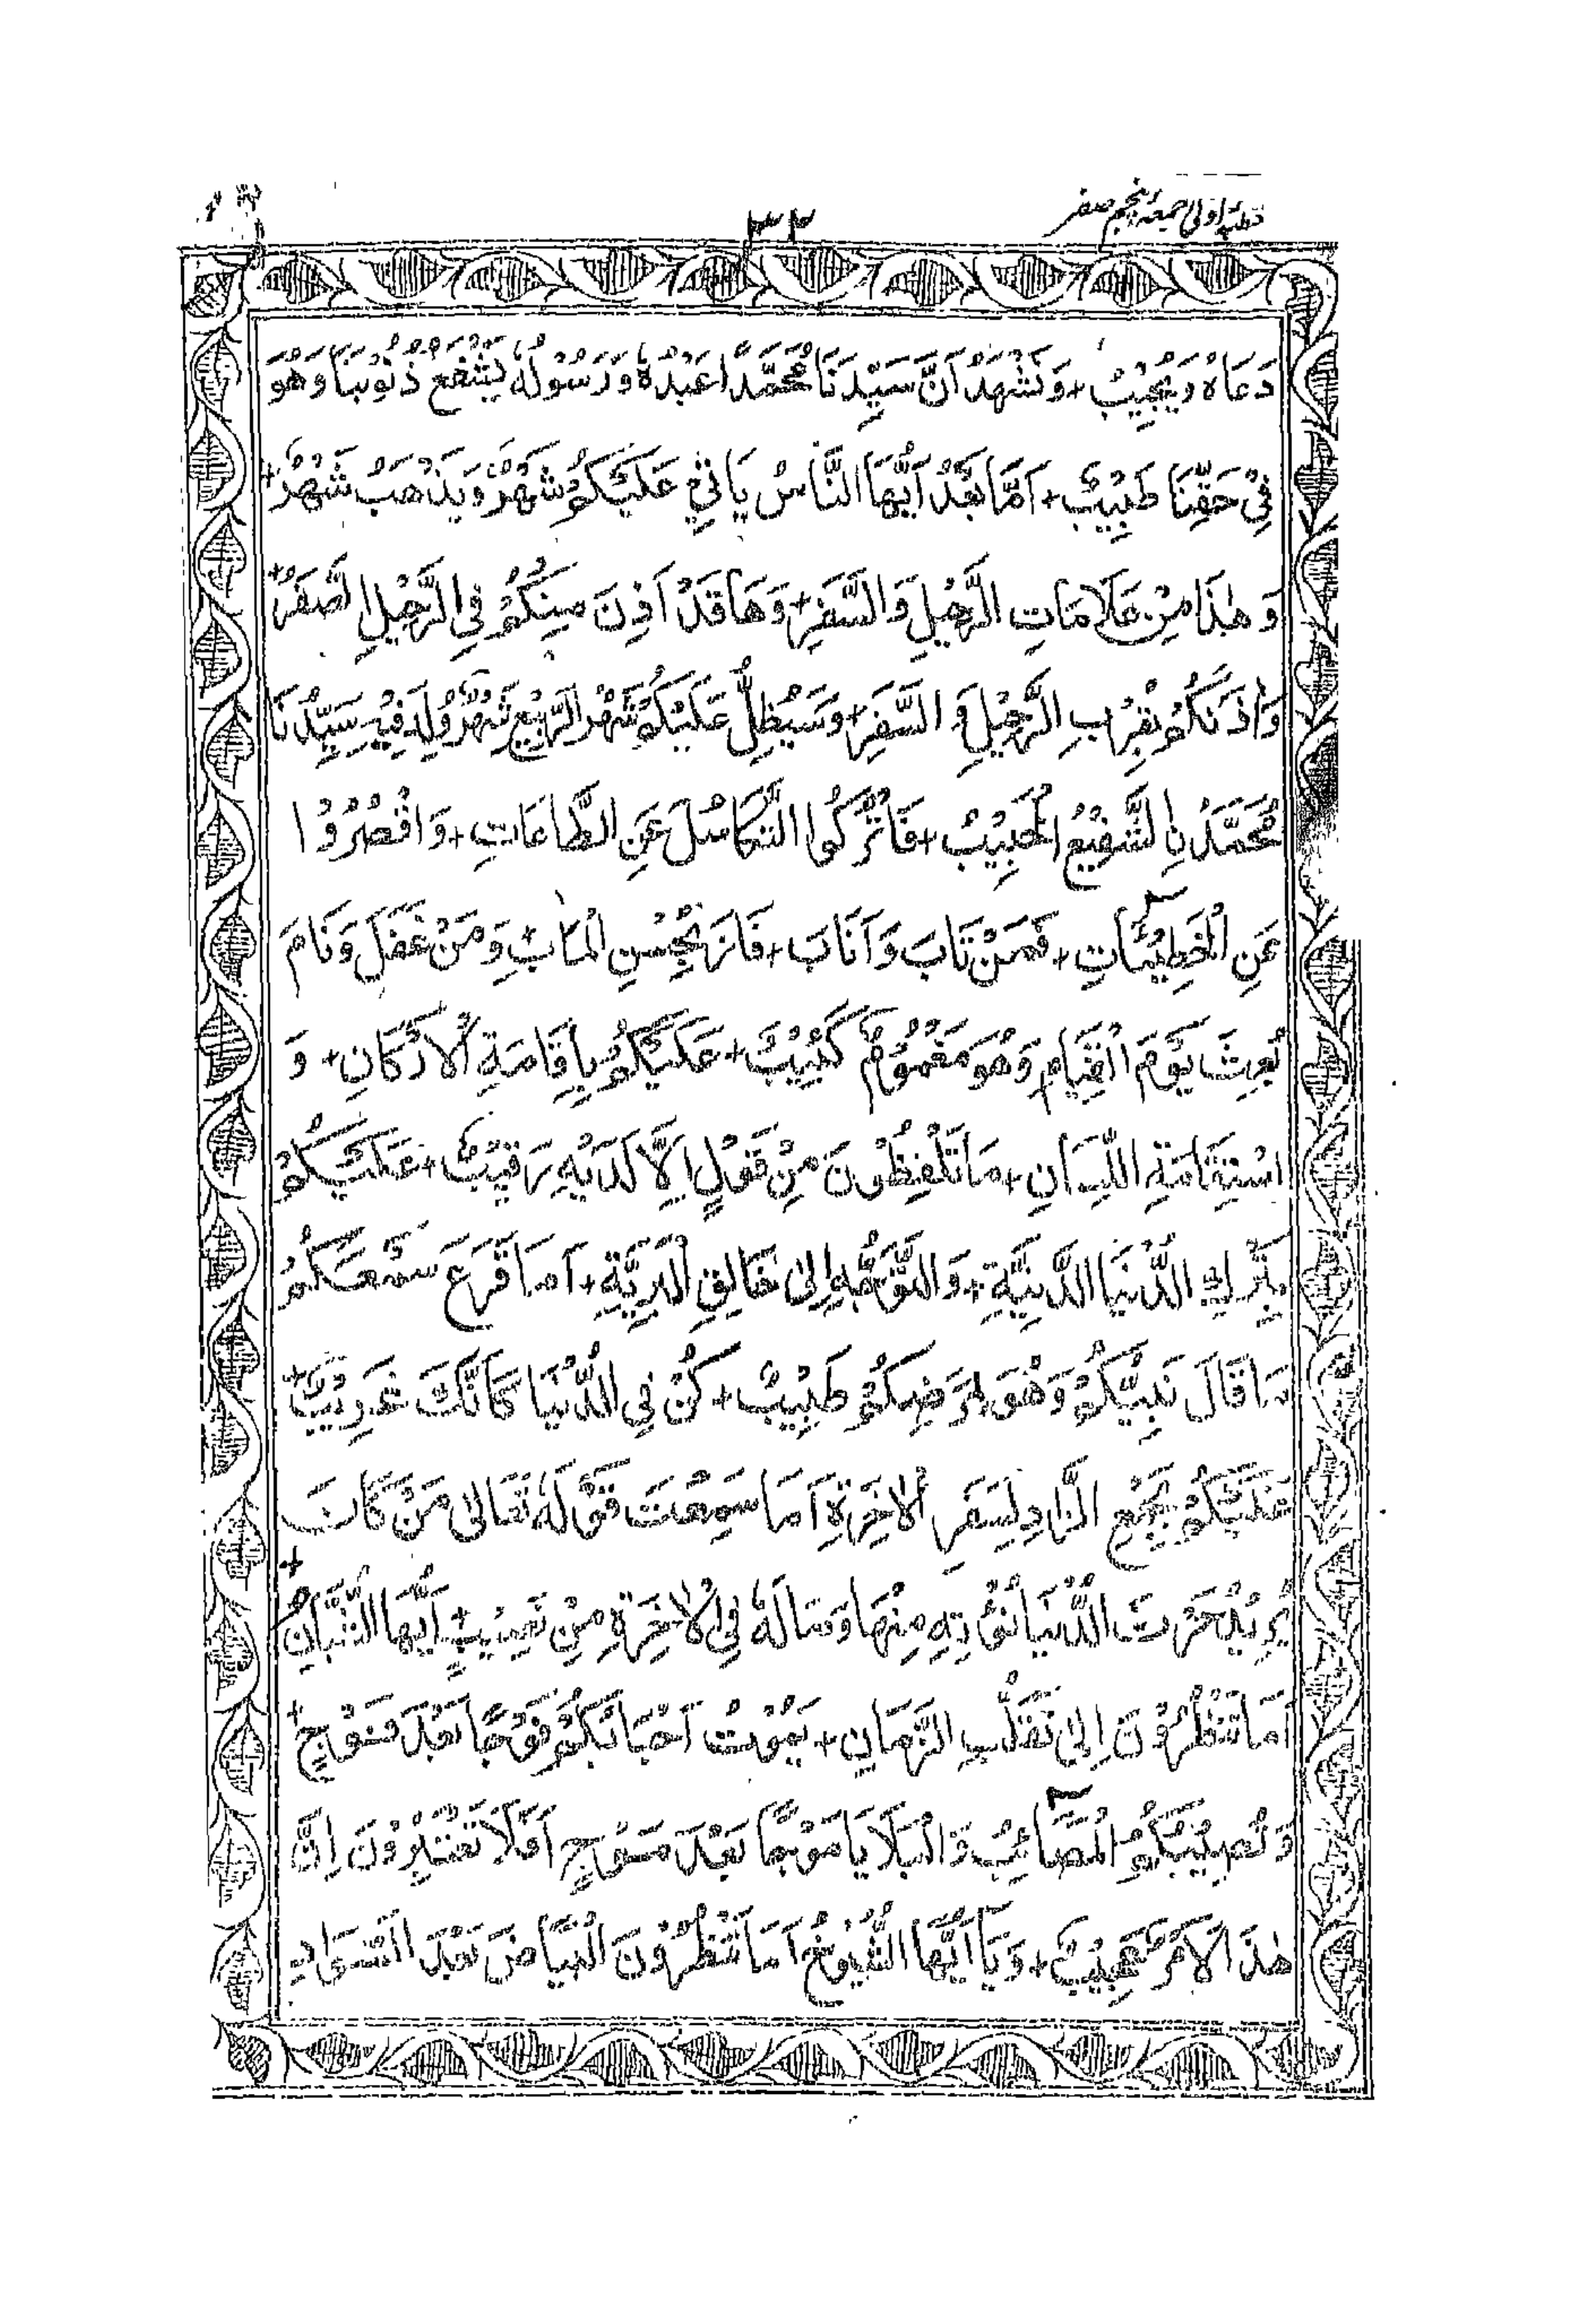 خطبہ اولی جمعہ پنجم صفر
٣٢
دَعَاهُ وَيُجِيْبُ + وَنَشْهَدُ اَنَّ سَيِّدَنَا مُحَمَّدًا عَبْدُهٗ وَرَسُوْلُهٗ يَشْفَعُ ذُنُوْبَنَا وَهُوَ
فِيْ حَقِّنَا طَبِيْبٌ + اَمَّا بَعْدُ اَيُّهَا النَّاسُ يَاْتِيْ عَلَيْكُمْ شَهْرٌ وَيَذْهَبُ شَهْرٌ +
وَهٰذَا مِنْ عَلَامَاتِ الرَّحِيْلِ وَالسَّفَرِ + وَهَا قَدْ اَذِنَ مِنْكُمْ فِي الرَّحِيْلِ الصَّفَرُ +
وَاٰذَنَكُمْ بِقُرْبِ الرَّحِيْلِ وَ السَّفَرِ + وَسَيُظِلُّ عَلَيْكُمْ شَهْرُ الرَّبِيْعِ شَهْرٌ وُلِدَ فِيْهِ سَيِّدُنَا
مُحَمَّدُ نِ الشَّفِيْعُ الْحَبِيْبُ + فَاتْرُكُوا التَّكَاسُلَ عَنِ الطَّاعَاتِ + وَاقْصُرُوْا
عَنِ الْخَطِيْئَاتِ + فَمَنْ تَابَ وَاَنَابَ + فَازَ بِحُسْنِ الْمَاٰبِ وَمَنْ غَفَلَ وَنَامَ
بُعِثَ يَوْمَ الْقِيَامِ وَهُوَ مَغْمُوْمٌ كَئِيْبٌ + عَلَيْكُمْ بِاِقَامَةِ الْاَرْكَانِ + وَ
اسْتِقَامَةِ اللِّسَانِ + مَا تَلْفِظُوْنَ مِنْ قَوْلٍ اِلَّا لَدَيْهِ رَقِيْبٌ + عَلَيْكُمْ
بِتَرْكِ الدُّنْيَا الدَّنِيَّةِ + وَالتَّوَجُّهِ اِلٰى خَالِقِ الْبَرِيَّةِ + اَمَا قَرَعَ سَمْعَكُمْ
مَا قَالَ نَبِيُّكُمْ وَهُوَ لِمَرَضِكُمْ طَبِيْبٌ + كُنْ فِي الدُّنْيَا كَاَنَّكَ غَرِيْبٌ +
عَلَيْكُمْ بِجَمْعِ الزَّادِ لِسَفَرِ الْاٰخِرَةِ اَمَا سَمِعْتَ قَوْلَهٗ تَعَالٰى مَنْ كَانَ
يُرِيْدُ حَرْثَ الدُّنْيَا نُؤْتِهٖ مِنْهَا وَمَا لَهٗ فِي الْاٰخِرَةِ مِنْ نَصِيْبٍ + اَيُّهَا الشُّبَّانُ +
اَمَا تَنْظُرُوْنَ اِلٰى تَقَلُّبِ الزَّمَانِ + يَمُوْتُ اَحْبَابُكُمْ فَوْجًا بَعْدَ فَوْجٍ +
وَتُصِيْبُكُمُ الْمَصَائِبُ وَالْبَلَايَا مَوْجًا بَعْدَ مَوْجٍ اَفَلَا تَعْتَبِرُوْنَ اِنَّ
هٰذَا لَاَمْرٌ عَجِيْبٌ + وَيَا اَيُّهَا الشُّيُوْخُ اَمَا تَنْظُرُوْنَ الْبَيَاضَ بَعْدَ السَّوَادِ